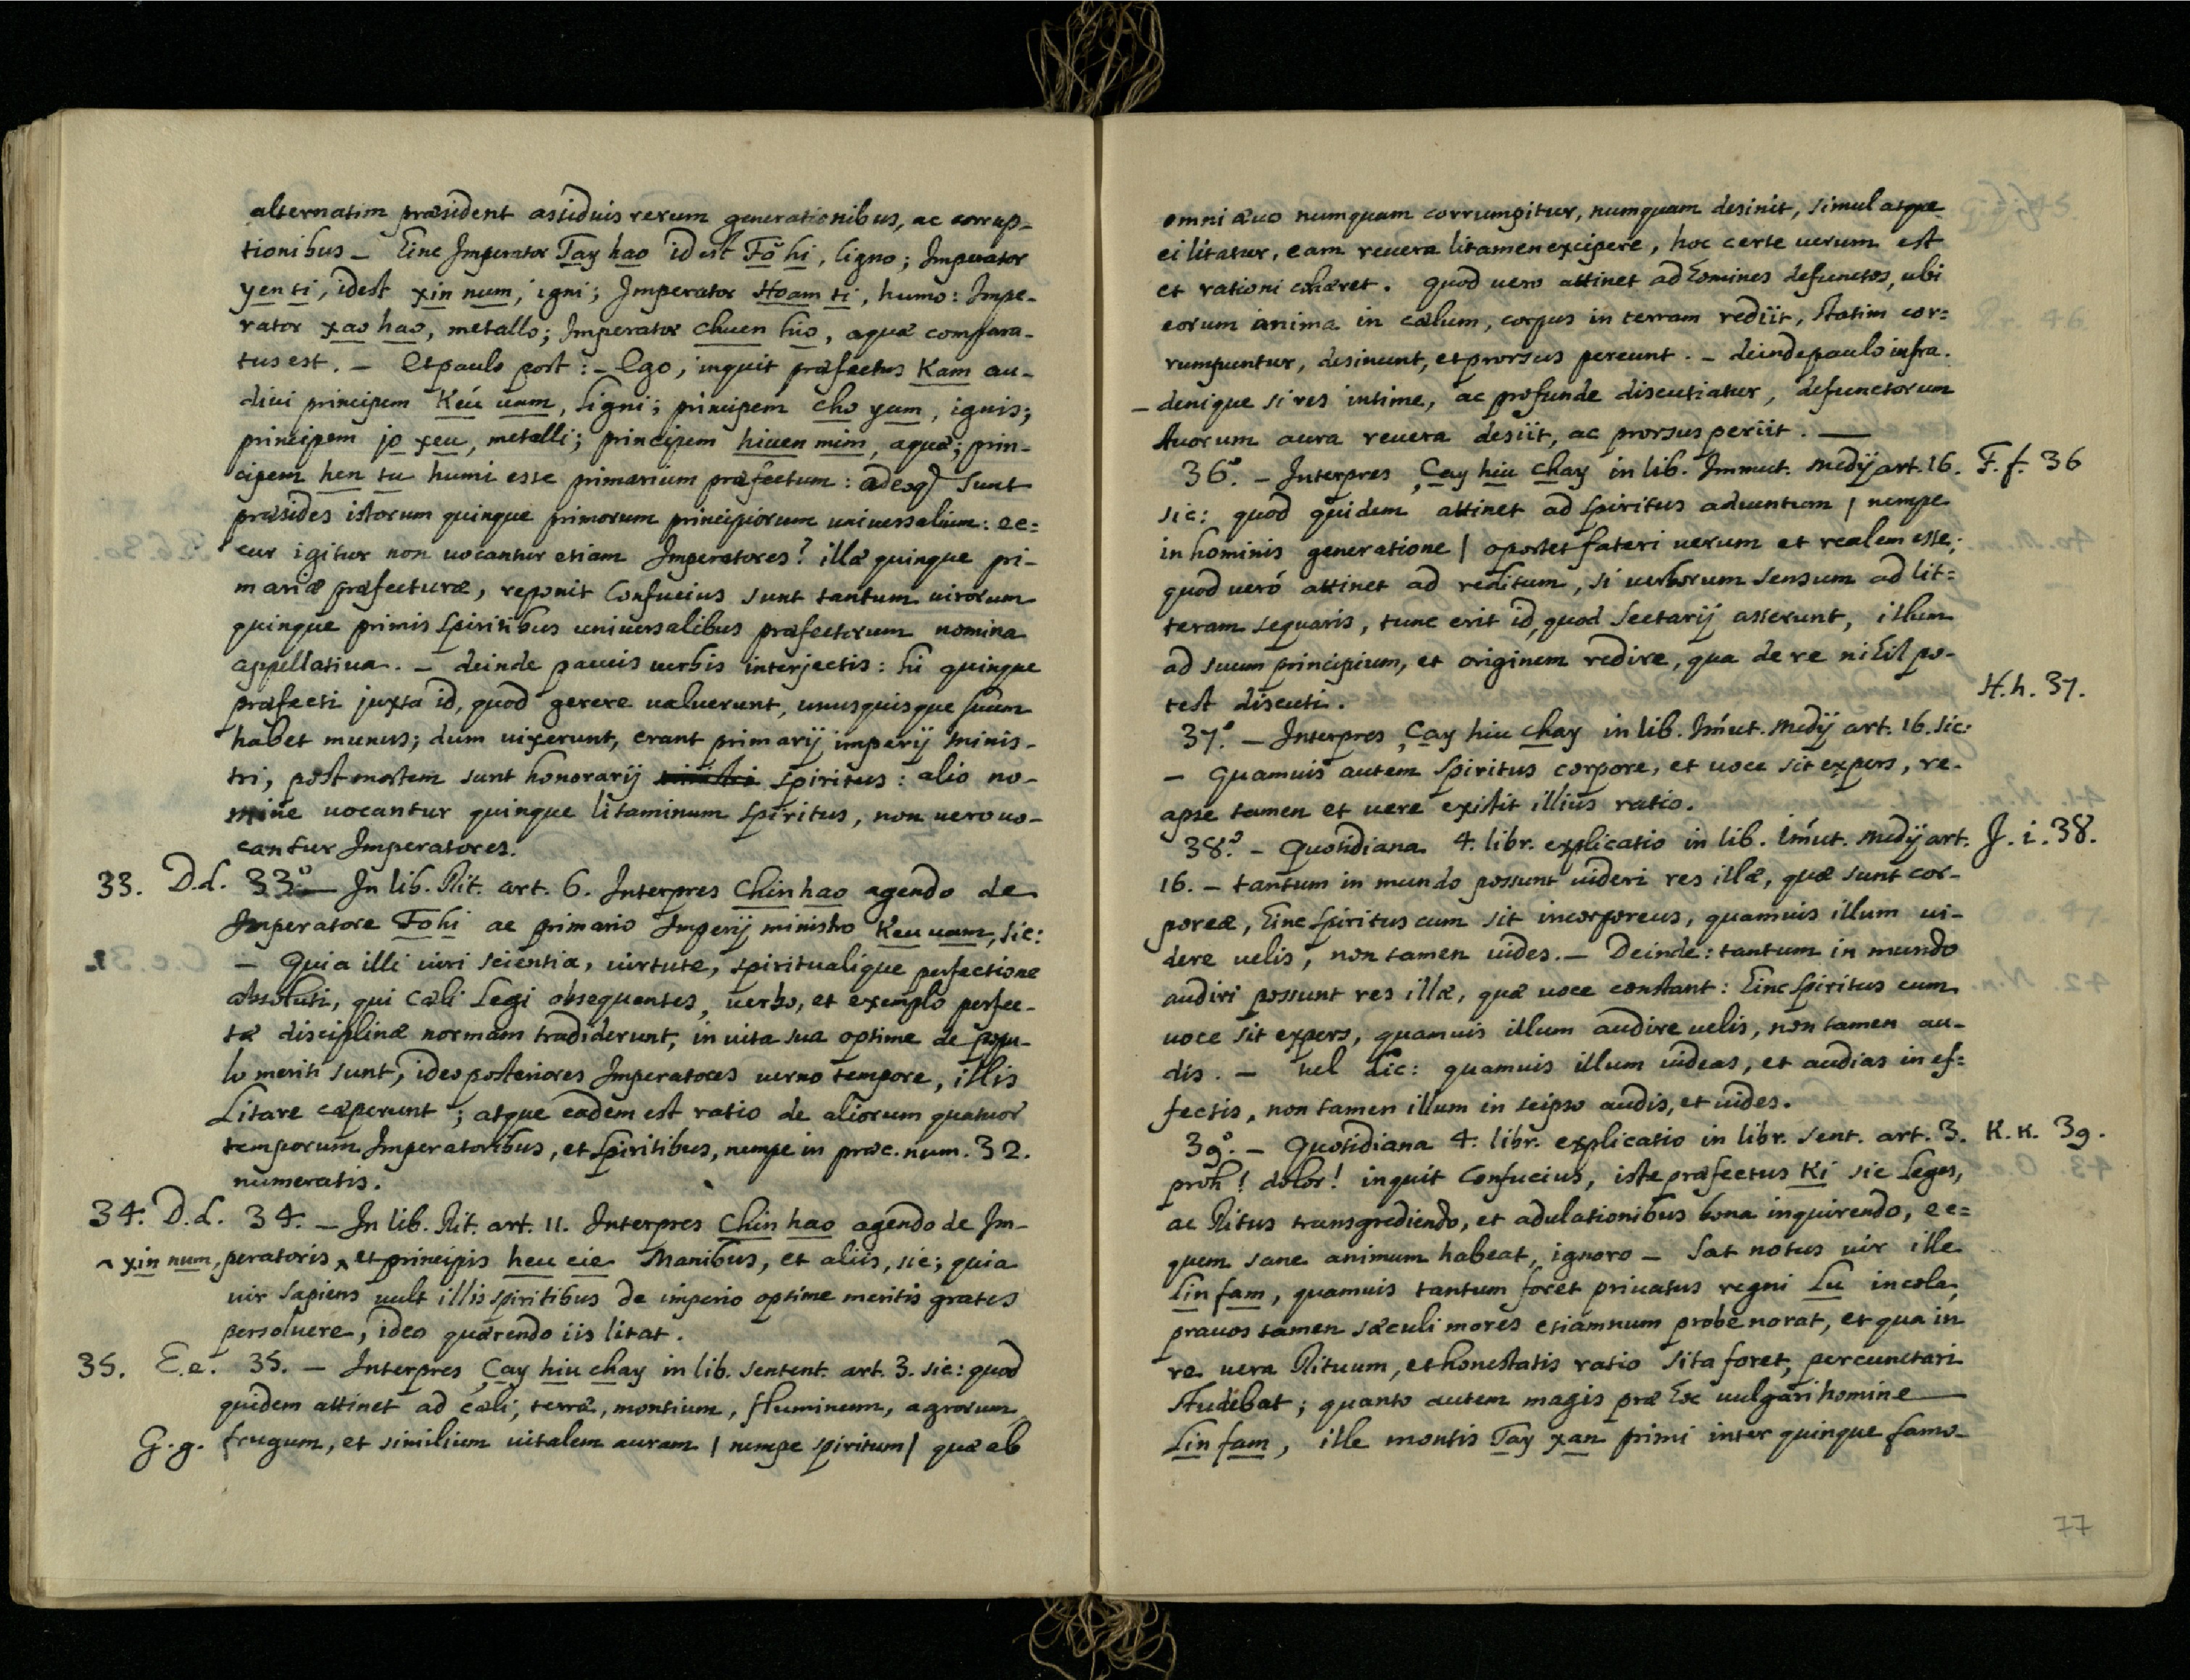 alternatim præsident assiduis rerum generationibus, ac corrup-
tionibus _ hinc Imperator Tay hao id est Fŏ hi, ligno; Imperator
yen ti, idest xin num, igni; Imperator Hoam ti, humo: Impe-
rator xao hao, metallo; Imperator chuen hio, aquæ compara-
tus est. _ Et paulo post: _ Ego, inquit præfectus Kam au-
divi principem Keú uam, ligni; principem cho yum, ignis;
principem jo xeu, metalli; principem hiuen mim, aquæ; prin-
cipem heu tu humi esse primarium præfectum: adeoq) sunt
præsides istorum quinque primorum principiorum universalium: ec=
cur igitur non vocantur etiam Imperatores? illæ quinque pri-
mariæ præfecturæ, reponit Confucius sunt tantum virorum
quinque primis spiritibus universalibus præfectorum nomina
appellativa. _ deinde paucis verbis interjectis: hi quinque
præfecti juxta id, quod gerere valuerunt, unusquisque suum
habet munus; dum vixerunt, erant primarij imperij minis-
tri, post mortem sunt honorarij spiritus: alio no-
mine vocantur quinque litaminum spiritus, non vero vo-
cantur Imperatores.
33. D.d. 33.° _ In lib. Rit. art. 6. Interpres Chin hao agendo de
Imperatore Fo hi ac primario Imperij ministro Keu uam, sic:
_ Quia illi viri scientia, virtute, spiritualique perfectione
absoluti, qui Cæli Legi obsequentes, verbo, et exemplo perfec-
tæ disciplinæ normam tradiderunt, in vita sua optime de popu-
lo meriti sunt, ideo posteriores Imperatores verno tempore, illis
Litare cæperunt; atque eadem est ratio de aliorum quatuor
temporum Imperatoribus, et spiritibus, nempe in præc. num. 32.
numeratis.
34. D.d. 34. _ In lib. Rit. art. 11. Interpres Chin hao agendo de Im-
^ xin num, peratoris ^ et principis heu cie Manibus, et aliis, sic; quia
vir sapiens vult illis spiritibus de imperio optime meritis grates
persolvere, ideo quærendo iis litat.
35. E.e. 35. _ Interpres Çay hiu chay in lib. sentent. art. 3. sic: quod
quidem attinet ad cæli, terræ, montium, fluminum, agrorum
G.g. frugum, et similium vitalem auram | nempe spiritum | quæ ab
omni ævo numquam corrumpitur, numquam desinit, simul atque
ei litatur, eam revera litamen excipere, hoc certe verum est
et rationi cohæret. quod vero attinet ad homines defunctos, ubi
eorum anima in cælum, corpus in terram rediit, statim cor=
rumpuntur, desinunt, et prorsus pereunt. _ deinde paulo infra.
_ denique si res intime, ac profunde discutiatur, defunctorum
suorum aura revera desiit, ac prorsus periit. __
36.° _ Interpres Çay hiu chay in lib. Immut. Medij art. 16. F.f. 36
sic: quod quidem attinet ad spiritus adventum | nempe
in hominis generatione | oportet fateri verum et realem esse;
quod veró attinet ad reditum, si verborum sensum ad lit=
teram sequaris, tunc erit id, quod sectarij asserunt, illum
ad suum principium, et originem redire, qua de re nihil po-
test discuti.
H.h. 37.
37.° _ Interpres Çay hiu chay in lib. Imút. Medij art. 16. sic:
_ quamvis autem spiritus corpore, et voce sit expers, re-
apse tamen et vere existit illius ratio.
38.° _ Quotidiana 4. libr. explicatio in lib. imút. Medij art. J.i. 38.
16. _ tantum in mundo possunt videri res illæ, quæ sunt cor-
poreæ, hinc spiritus cum sit incorporeus, quamvis illum vi-
dere velis, non tamen vides. _ Deinde: tantum in mundo
audiri possunt res illæ, quæ voce constant: hinc spiritus cum
voce sit expers, quamvis illum audire velis, non tamen au-
dis. _ vel dic: quamvis illum videas, et audias in ef=
fectis, non tamen illum in seipso audis, et vides.
39.° _ Quotidiana 4. libr. explicatio in libr. sent. art. 3. K.K. 39.
proh! dolor! inquit Confucius, iste præfectus Ki sic Leges,
ac Ritus transgrediendo, et adulationibus bona inquirendo, ec=
quem sane animum habeat, ignoro _ sat notus vir ille
Lin fam, quamvis tantum foret privatus regni Lu incola,
pravos tamen sæculi mores etiamnum probe norat, et qua in
re vera Rituum, et honestatis ratio sita foret, percunctari
studebat; quanto autem magis præ hoc vulgari homine
Lin fam, ille montis Tay xan primi inter quinque famo-
77